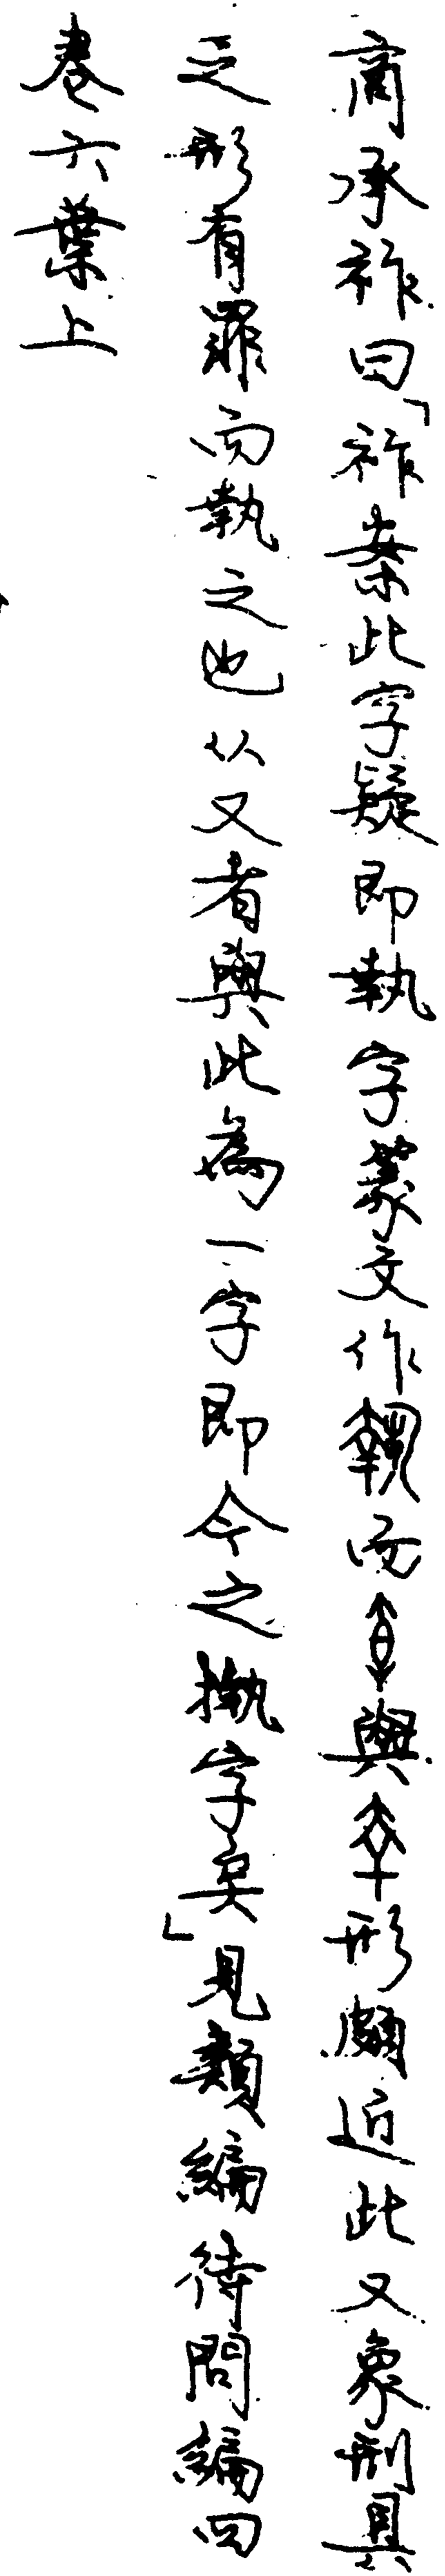 商承祚曰「祚案此字疑即執字篆文作而與形頗近此又象刑具
之形有罪而執之也从又者與此為一字即今之摯字矣」見類編待問編四
卷六葉上